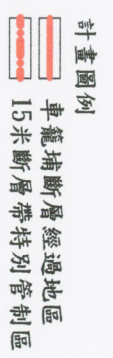 計畫圖例
車籠埔斷層經過地區
15米斷層帶特別管制區